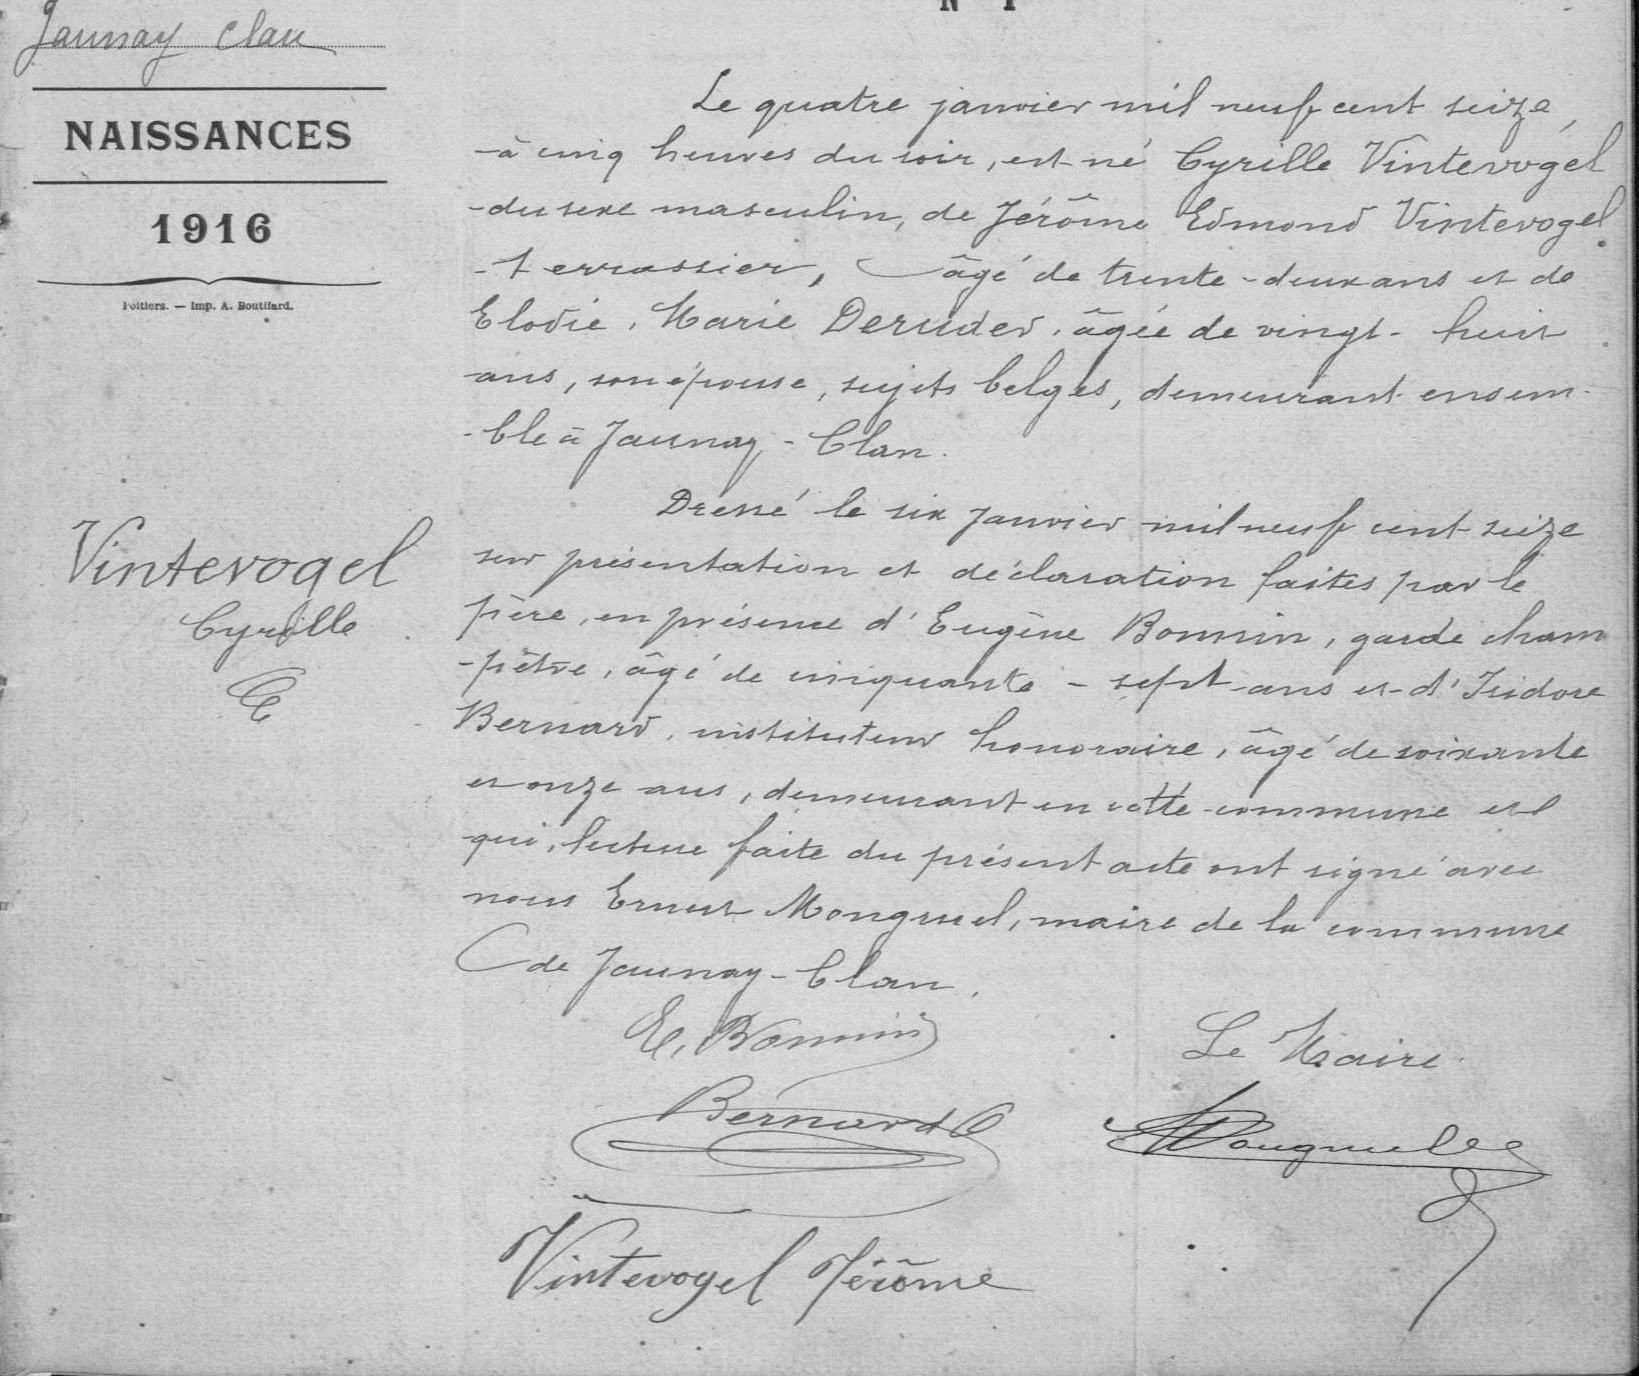 N° 1
Jaunay Clan
NAISSANCES
1916
Poitiers. — Imp. A. Boutifard.
Le quatre janvier mil neuf cent seize,
à cinq heures du soir, est né Cyrille Vintevogel
du sexe masculin, de Jérôme Edmond Vintevogel
terrassier, âgé de trente-deux ans et de
Elodie, Marie Deruder, âgée de vingt-huit
ans, son épouse, sujets belges, demeurant ensem-
-ble à Jaunay-Clan.
Dressé le six janvier mil neuf cent seize
sur présentation et déclaration faites par le
père, en présence d'Eugène Bonnin, garde cham
-pêtre, âgé de cinquante-sept ans et d'Isidore
Bernard, instituteur honoraire, âgé de soixante
et onze ans, demeurant en cette commune et
qui, lecture faite du présent acte ont signé avec
nous Ernest Mongruel, maire de la commune
de Jaunay-Clan.
Vintevogel
Cyrille
E. Bonnin
Le Maire
Bernard
Mongruel
Vintevogel Jérôme